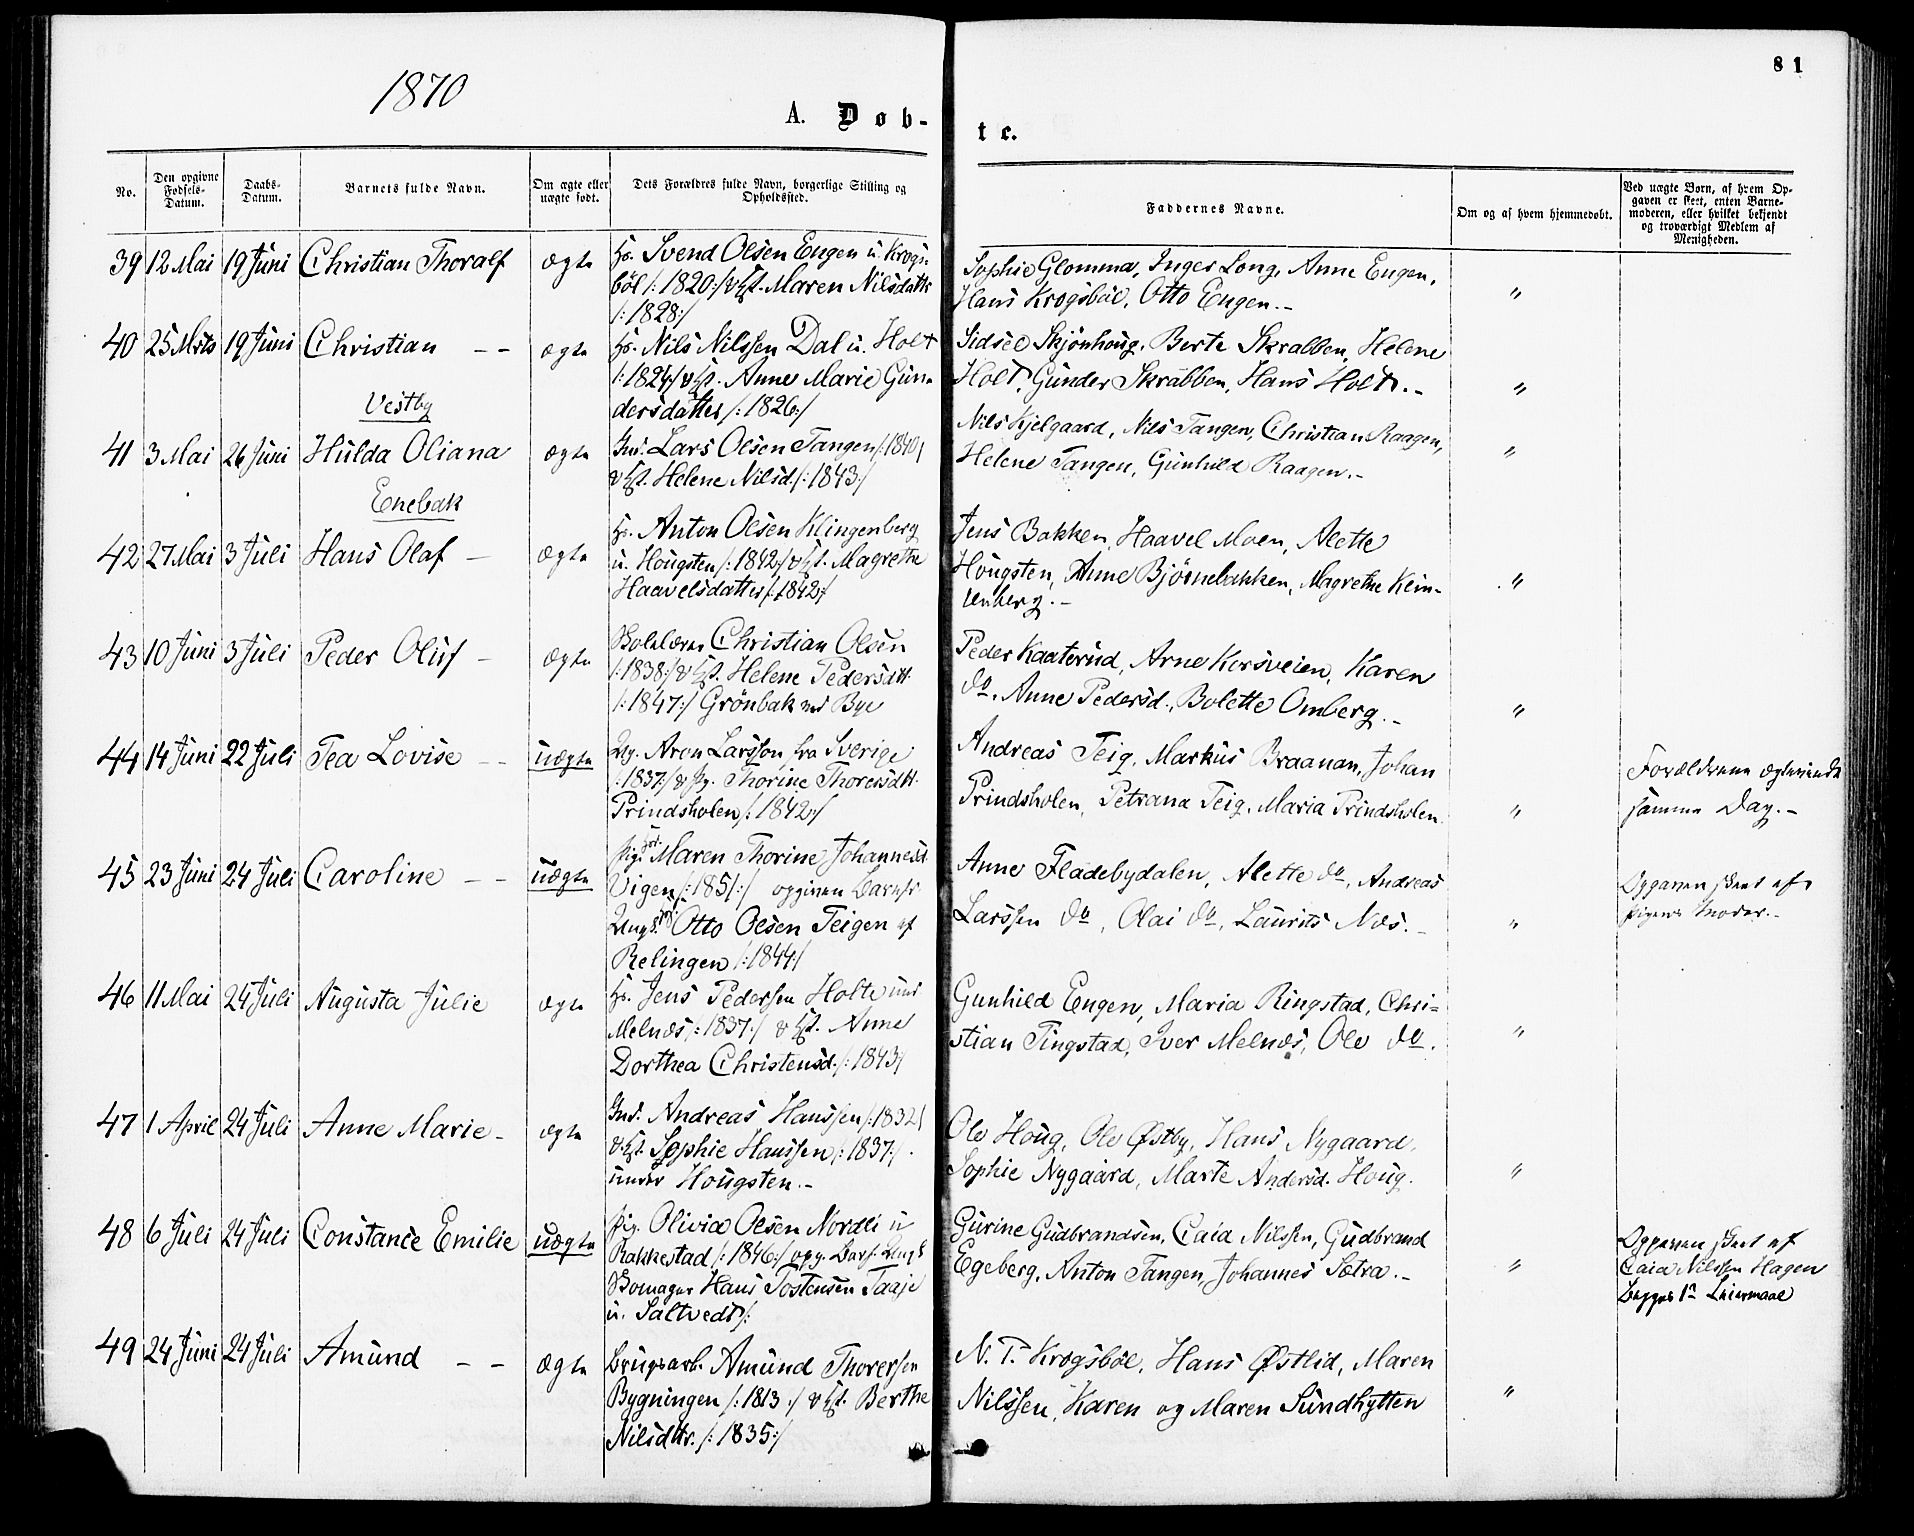 81
1870
A. Døb-
te.
No.
Den opgivne Fødsels-Datum.
Daabs-Datum.
Barnets fulde Navn.
Om ægte eller uægte født.
Dets Forældres fulde Navn, borgerlige Stilling og Opholdssted.
Faddernes Navne.
Om og af hvem hjemmedøbt.
Ved uægte Børn, af hvem Opgaven er skeet, enten Barnemoderen, eller hvilket bekjendt og troværdigt Medlem af Menigheden.
39 12 Mai 19 Juni Christian Thoralf ægte
Hs. Svend Olsen Engen u. Krogs-
böl /: 1820:/ & Hst. Maren Nilsdattr
/: 1828:/
Sophie Glomma, Inger Long, Anne Engen,
Hans Krogsböl, Otto Engen.- "
40 25 Mrts 19 Juni Christian - - ægte
Hs. Nils Nilssen Dal u. Holt
/: 1824:/ & Hst. Anne Marie Gun-
dersdatter /: 1826:/
Sidsel Skjönhoug, Berte Skrabben, Helene
Holt, Gunder Skrabben, Hans Holt.- "
Vestby
41 3 Mai 26 Juni Hulda Oliana ægte
Ind. Lars Olsen Tangen /: 1840/
& Hst. Helene Nilsd. /: 1843:/
Nils Kjelgaard, Nils Tangen, Christian Raagen,
Helene Tangen, Gunhild Raagen.- "
Enebak
42 27 Mai 3 Juli Hans Olaf - ægte
Hs. Anton Olsen Klingenberg
u. Hougsten /: 1842:/ & Hst. Magrethe
Haavelsdatter /: 1842:/
Jens Bakken, Haavel Moen, Alette
Hougsten, Anne Bjørnebakken, Magrethe Klin-
genberg.- "
43 10 Juni 3 Juli Peder Oluf - ægte
Skolelærer Christian Olsen
/: 1838:/ & Hst. Helene Pedersdtt.
/: 1847:/ Grönbak und Bye
Peder Kaaterud, Arne Korsveien, Karen
do, Anne Pedersd., Bolette Omberg.- "
44 14 Juni 22 Juli Tea Lovise - - uægte
Ug. Aron Larsson fra Sverige
/: 1837:/ & Pg. Thorine Thoresdtt.
Prindsholen /: 1842:/
Andreas Teig, Markus Braanan, Johan
Prindsholen, Petrana Teig, Maria Prindsholen. "
Forældrene ægteviede
samme Dag.-
45 23 Juni 24 Juli Caroline - - uægte
Pige Maren Thorine Johannesd.
Vigen /: 1851:/ opgiven Barnefr
Ungk. Otto Olsen Teigen af
Relingen /: 1844:/
Anne Fladebydalen, Alette do, Andreas
Larssen do, Olai do, Laurits Næs.- "
Opgaven skeet af
Pigens Moder.-
46 11 Mai 24 Juli Augusta Julie ægte
Hs. Jens Pedersen Holte und
Melnæs /: 1837:/ & Hst. Anne
Dorthea Christensd. /: 1843/
Gunhild Engen, Maria Ringstad, Chri-
stian Tingstad, Iver Melnæs, Ole do. "
47 1 April 24 Juli Anne Marie - ægte
Ind. Andreas Hanssen /: 1832/
& Hst. Sophie Hanssen /: 1837:/.
under Hougsten.-
Ole Houg, Ole Østby, Hans Nygaard,
Sophie Nygaard, Marte Andersd. Houg. "
48 6 Juli 24 Juli Constance Emilie uægte
Pig. Olivia Olsen Nordli u
Rakkestad /: 1846:/ opg. Barf. Ungk
Skomager Hans Tostensen Taaje
u. Saltvedt /:
Gurine Gudbrandsen, Caia Nilssen, Gudbrand
Egeberg, Anton Tangen, Johannes Sætra.- "
Opgaven skeet af
Caia Nilssen Hagen
Begges 1ste Leiermaal
49 24 Juni 24 Juli Amund - - ægte
Brugsarb. Amund Thoresen
Bygningen /: 1813:/ & Hst. Berthe
Nilsdtr. /: 1835:/
N. T. Krogsböl, Hans Østlid, Maren
Nilssen, Karen og Maren Sundhytten "